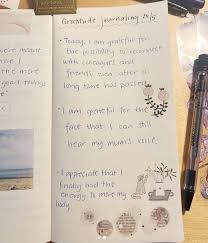 Gratitude journaling 24/5
• Today, I am grateful for
the possibility to reconnect
with colleagues and
friends even after a
long time has passed.
• I am grateful for the
fact that I can still
hear my mum's voice.
• I appreciate that I
finally had the
energy to move my
body.
were meant
the more
good things